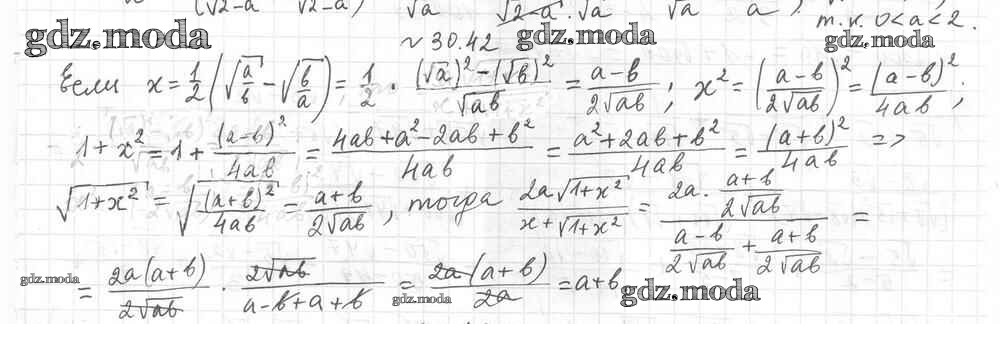 (√2-a √2-a) √a √2-a · √a √a a , т.к. 0<a<2.
gdz.moda gdz.moda gdz.moda
~ 30.42
Если x = 1/2 (√(a/b) - √(b/a)) = 1/2 · ((√a)² - (√b)²)/√ab = (a-b)/(2√ab) ; x² = ((a-b)/(2√ab))² = (a-b)²/4ab ;
1 + x² = 1 + (a-b)²/4ab = (4ab + a² - 2ab + b²)/4ab = (a² + 2ab + b²)/4ab = (a+b)²/4ab =>
√(1+x²) = √((a+b)²/4ab) = (a+b)/(2√ab) , тогда (2a√(1+x²))/(x+√(1+x²)) = (2a · (a+b)/(2√ab))/((a-b)/(2√ab) + (a+b)/(2√ab)) =
= (2a(a+b))/(2√ab) · (2√ab)/(a-b+a+b) = (2a(a+b))/2a = a+b
gdz.moda gdz.moda gdz.moda